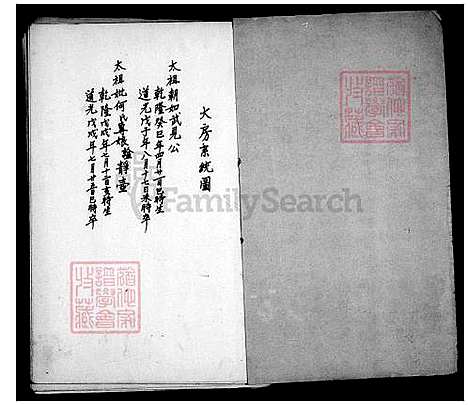 大房系統圖
太祖朝如武見公
乾隆癸巳年四月廿一日巳時生
道光戊子年八月十七日未時卒
太祖妣何氏尊娘諡靜壹
乾隆戊戌年七月十二日亥時生
道光戊戌年七月廿五日巳時卒
FamilySearch